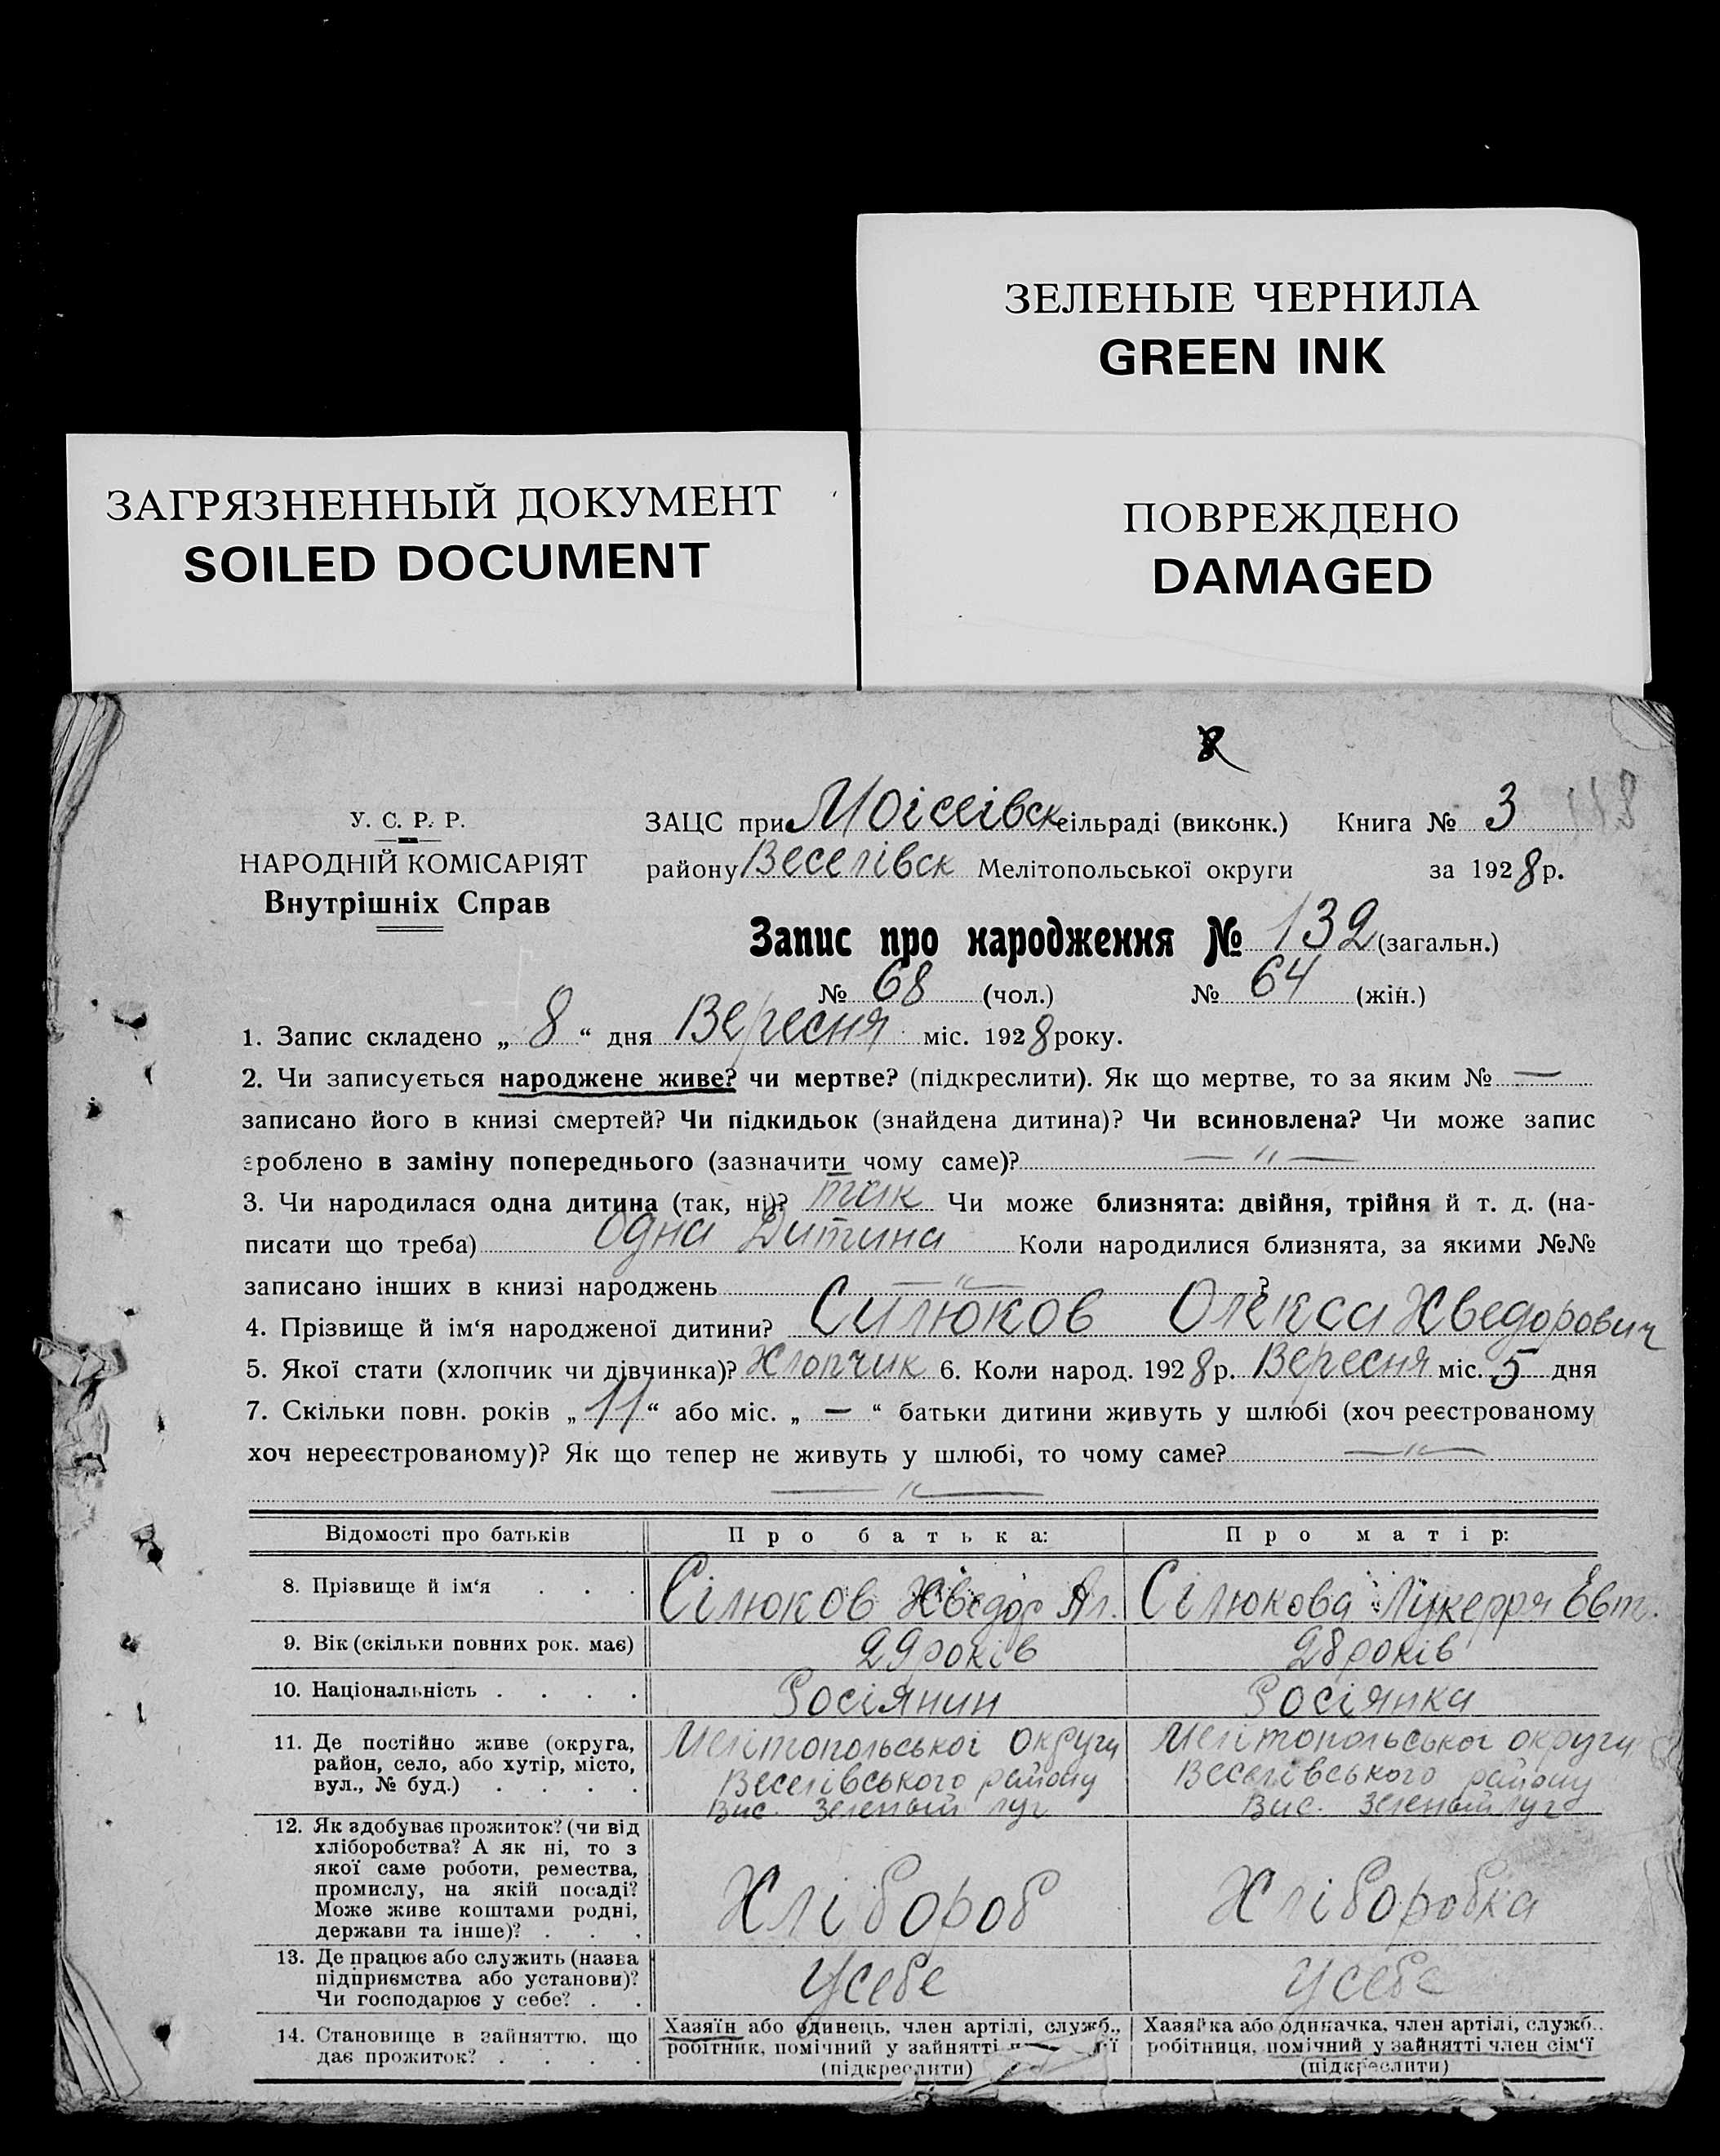 ЗЕЛЕНЫЕ ЧЕРНИЛА
GREEN INK
ЗАГРЯЗНЕННЫЙ ДОКУМЕНТ
SOILED DOCUMENT
ПОВРЕЖДЕНО
DAMAGED
У. С. Р. Р.
НАРОДНІЙ КОМІСАРІЯТ
Внутрішніх Справ
ЗАЦС при Моісеівск сільраді (виконк.) Книга № 3
району Веселівск Мелітопольської округи за 1928 р.
Запис про народження № 132 (загальн.)
№ 68 (чол.) № 64 (жін.)
1. Запис складено „ 8 “ дня Вересня міс. 1928 року.
2. Чи записується народжене живе? чи мертве? (підкреслити). Як що мертве, то за яким № —
записано його в книзі смертей? Чи підкидьок (знайдена дитина)? Чи всиновлена? Чи може запис
зроблено в заміну попереднього (зазначити чому саме)? — „ —
3. Чи народилася одна дитина (так, ні)? так Чи може близнята: двійня, трійня й т. д. (на-
писати що треба) Одна Дитина Коли народилися близнята, за якими №№
записано інших в книзі народжень — „ — ?
4. Прізвище й ім‘я народженої дитини? Силюков Олекса Хведорович
5. Якої стати (хлопчик чи дівчинка)? Хлопчик 6. Коли народ. 1928 р. Вересня міс. 5 дня
7. Скільки повн. років „ 11 “ або міс. „ — “ батьки дитини живуть у шлюбі (хоч реєстрованому
хоч нереєстрованому)? Як що тепер не живуть у шлюбі, то чому саме? — „ —
— „ —
Відомості про батьків Про батька: Про матір:
8. Прізвище й ім‘я . . . Сілюков Хведор Ал. Сілюкова Лукерря Евт.
9. Вік (скільки повних рок. має) 29 років 28 років
10. Національність . . . . Росіянин Росіянка
11. Де постійно живе (округа,
район, село, або хутір, місто,
вул., № буд.) . . . .
Мелітопольськоі округи
Веселівського району
Вис. Зеленый луг
Мелітопольськоі округи
Веселівського району
Вис. Зеленый луг
12. Як здобуває прожиток? (чи від
хліборобства? А як ні, то з
якої саме роботи, ремества,
промислу, на якій посаді?
Може живе коштами родні,
держави та інше)? . . .
Хлібороб
Хліборобка
13. Де працює або служить (назва
підприємства або установи)?
Чи господарює у себе? . .
У себе
У себе
14. Становище в зайняттю, що
дає прожиток? . . . .
Хазяїн або одинець, член артілі, служб.,
робітник, помічний у зайнятті
(підкреслити)
Хазяйка або одиначка, член артілі, служб..
робітниця, помічний у зайнятті член сім‘ї
(підкреслити)